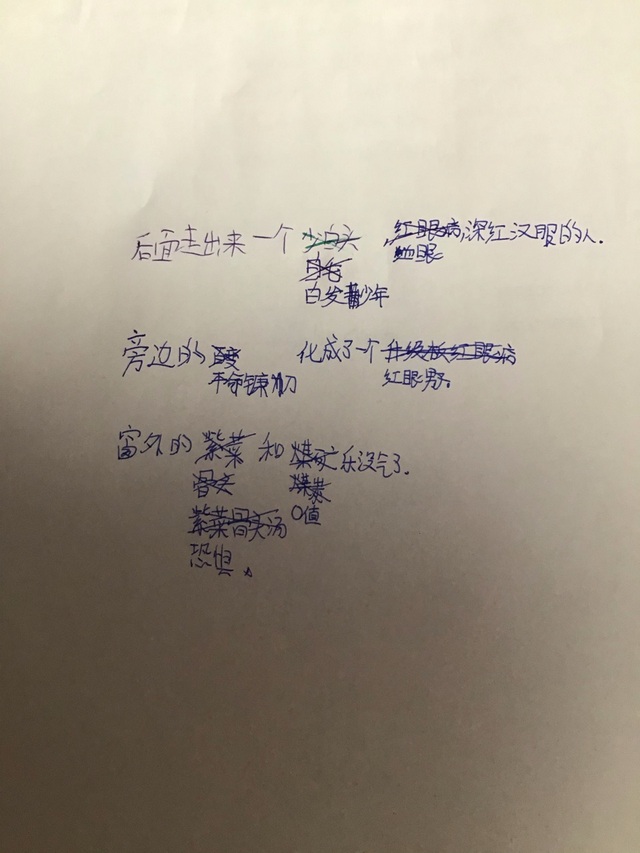 后面走出来一个 小白头 红眼病,深红汉服的人.
血眼
白发青少年
旁边的 化成了一个 升级板红眼病
夺命镰刀 红眼男。
窗外的 紫菜 和 煤矿 乐没气了.
骨头 煤炭
紫菜骨头汤 0值
恐惧